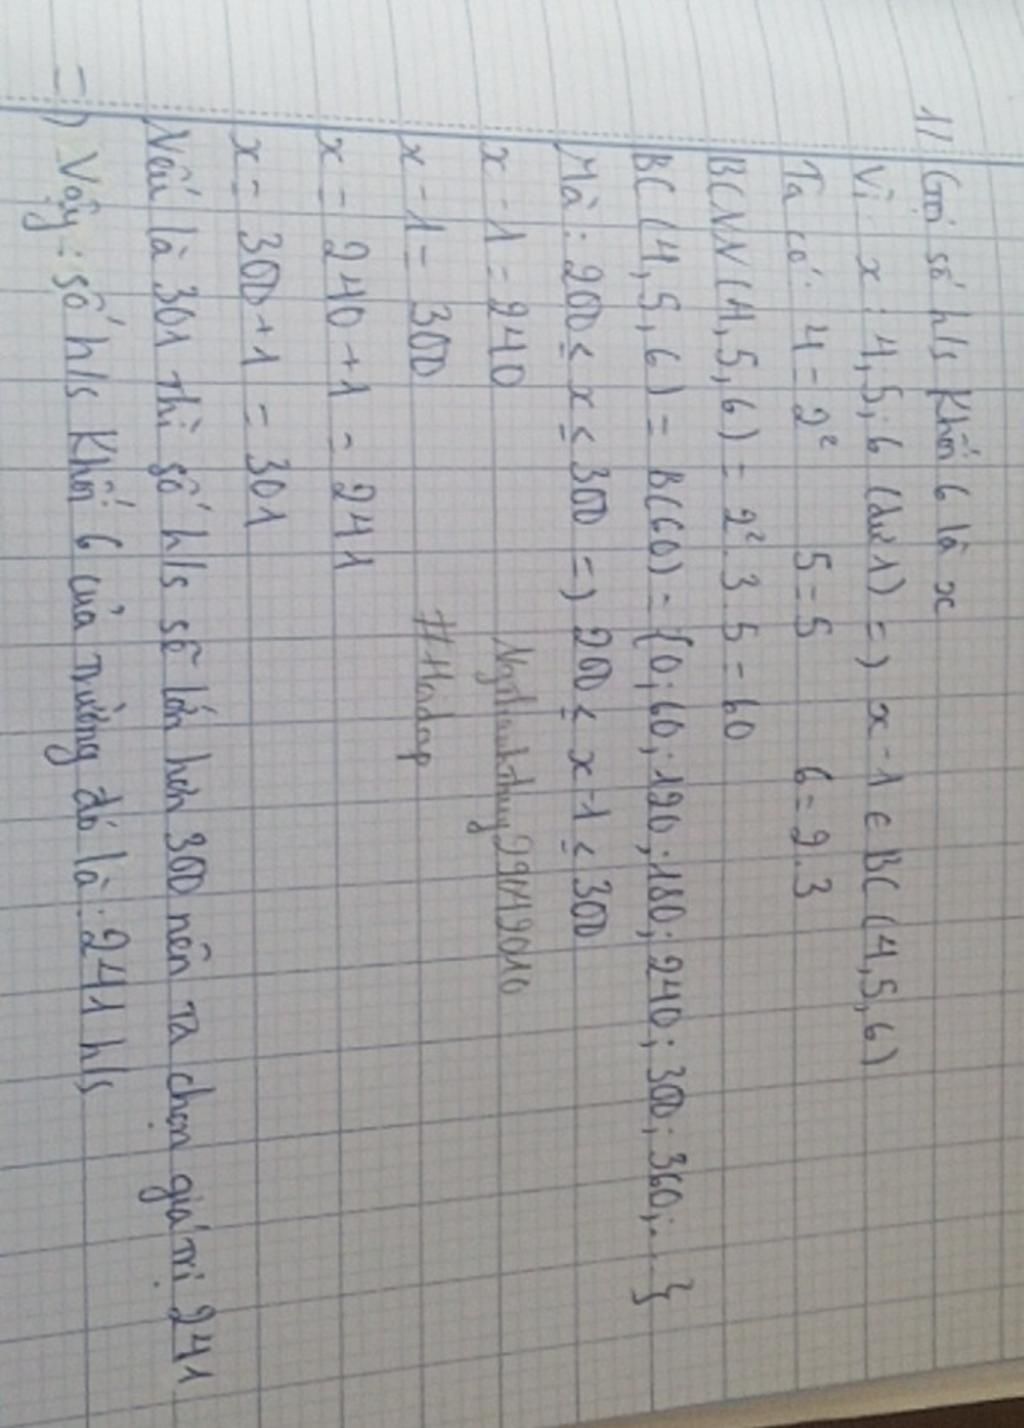 1// Gọi số h/s Khối 6 là x
Vì x : 4, 5; 6 (dư 1) =) x - 1 ∈ BC (4, 5, 6)
Ta có: 4 = 2² 5 = 5 6 = 2.3
BCNN (4, 5, 6) = 2².3.5 = 60
BC (4, 5, 6) = B(60) = {0; 60; 120; 180; 240; 300; 360; ...}
Mà: 200 ≤ x ≤ 300 =) 200 ≤ x - 1 ≤ 300
x - 1 = 240
x - 1 = 300 #Hoidap
x = 240 + 1 = 241
x = 300 + 1 = 301
Nếu là 301 thì số h/s sẽ lớn hơn 300 nên ta chọn giá trị 241
=) Vậy: số h/s Khối 6 của trường đó là: 241 h/s